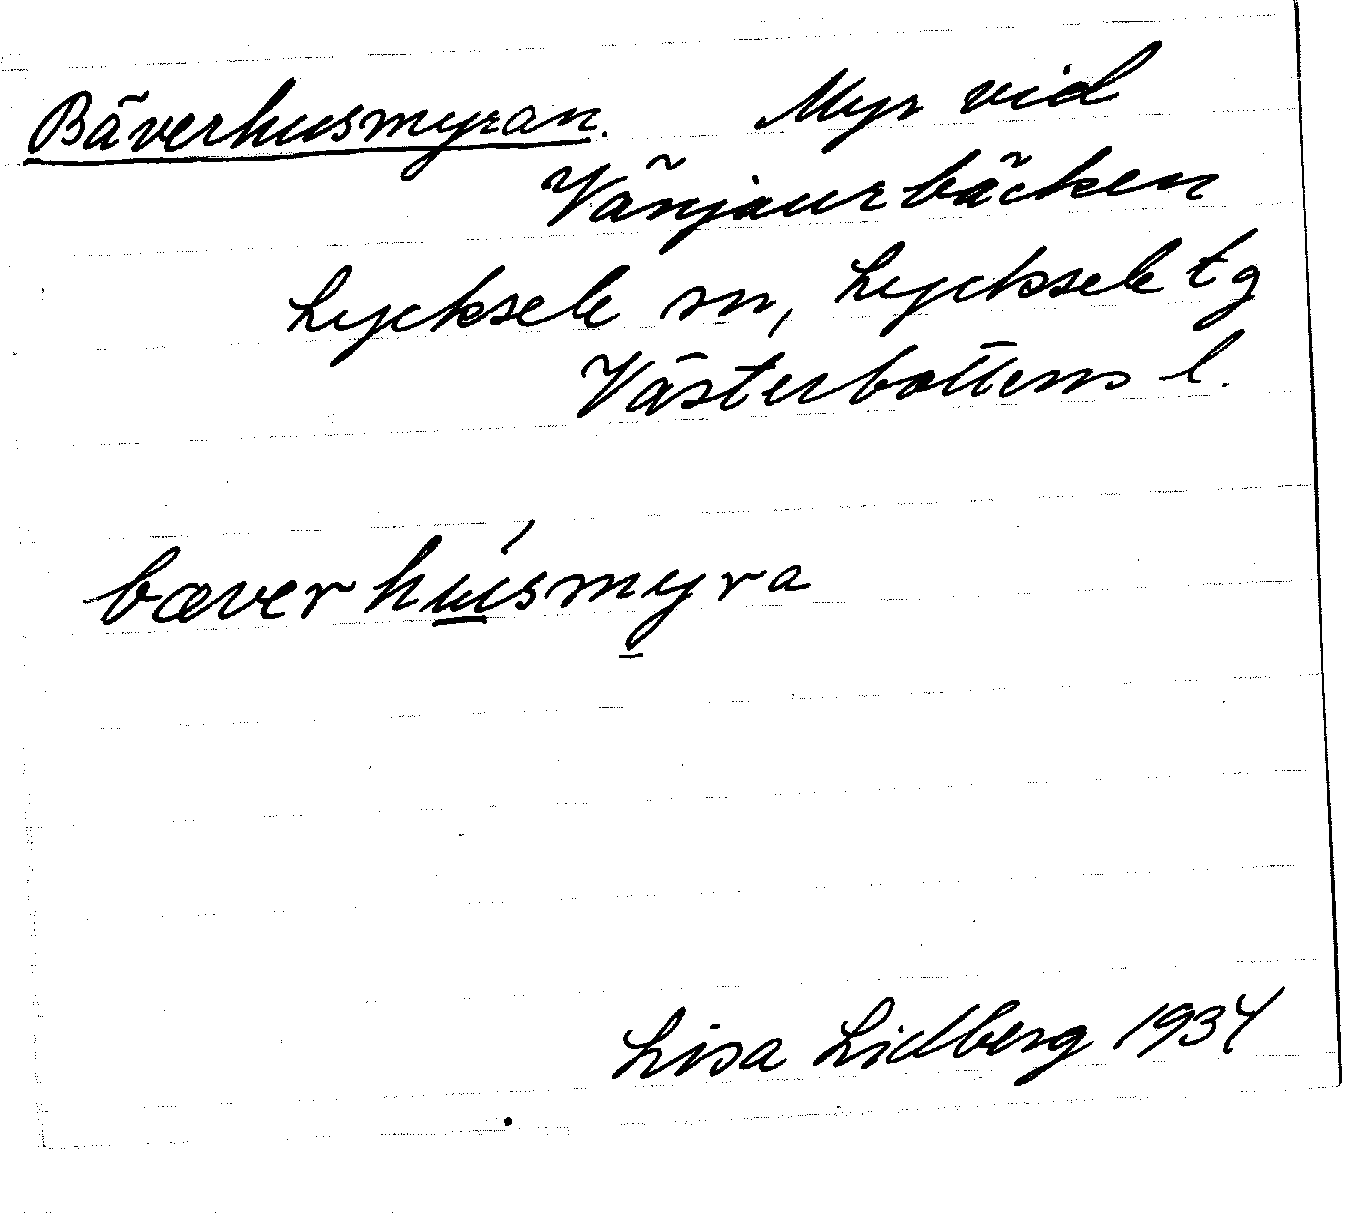 Bäverhusmyran. Myr vid
Vänjaurbäcken
Lycksele sn, Lycksele tg
Västerbottens l.
bæverhúsmyra
Lisa Lidberg 1934